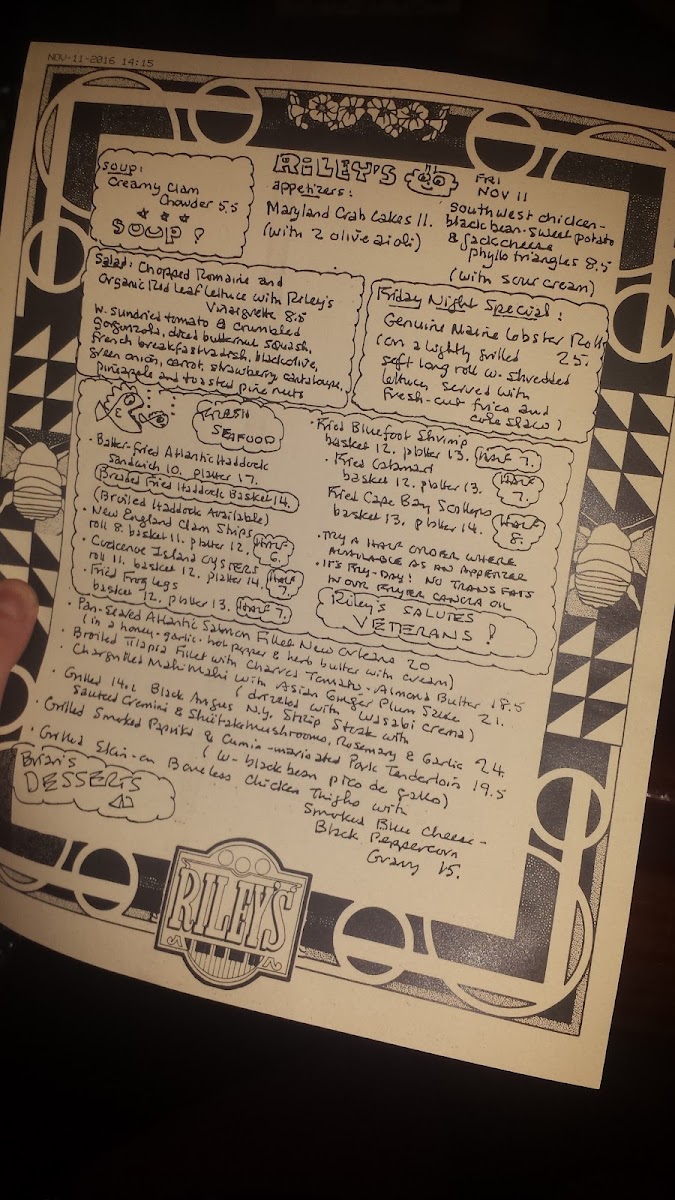 NOV-11-2016 14:15
SOUP:
Creamy Clam
Chowder 5.5
SOUP!
RILEY'S
appetizers:
Maryland Crab Cakes 11.
(with 2 olive aioli)
FRI
NOV 11
Southwest chicken-
black bean-sweet potato
& jack cheese
phyllo triangles 8.5
(with sour cream)
Salad: Chopped Romaine and
Organic Red Leaf Lettuce with Riley's
Vinaigrette 8.5
w. sundried tomato & crumbled
gorgonzola, diced butternut squash,
french breakfast radish, black olive,
green onion, carrot, strawberry, cantaloupe,
pineapple and toasted pine nuts
Friday Night Special:
Genuine Maine Lobster Roll
(on a lightly grilled 25.
soft long roll w. shredded
lettuce, served with
fresh-cut fries and
cole slaw)
FRESH
SEAFOOD
• Batter-fried Atlantic Haddock
Sandwich 10. platter 17.
Breaded Fried Haddock Basket 14.
(Broiled Haddock Available)
• New England Clam Strips
roll 8. basket 11. platter 12. HALF 6.
Island OYSTERS
roll 11. basket 12. platter 14. HALF 7.
• Fried Frog Legs
basket 12. platter 13. HALF 7.
• Fried Bluefoot Shrimp
basket 12. platter 13. HALF 7.
• Fried Calamari
basket 12. platter 13. HALF 7.
Fried Cape Bay Scallops
basket 13. platter 14. HALF 8.
• TRY A HALF ORDER WHERE
AVAILABLE AS AN APPETIZER
• IT'S FRY-DAY! NO TRANS FATS
IN OUR FRYER CANOLA OIL
Riley's SALUTES
VETERANS!
• Pan-Seared Atlantic Salmon Fillet New Orleans 20
(in a honey-garlic-hot pepper & herb butter with cream)
• Broiled Tilapia Fillet with Charred Tomato-Almond Butter 18.5
• Chargrilled Mahi Mahi with Asian Ginger Plum Sauce 21.
(drizzled with wasabi crema)
• Grilled 14oz Black Angus N.Y. Strip Steak with
Sauteed Cremini & Shiitake mushrooms, Rosemary & Garlic 24.
• Grilled Smoked Paprika & Cumin-marinated Pork Tenderloin 19.5
(w- black bean pico de gallo)
• Grilled Skin-on Boneless Chicken Thighs with
Smoked Blue Cheese-
Black Peppercorn
Gravy 15.
Brian's
DESSERTS
RILEY'S